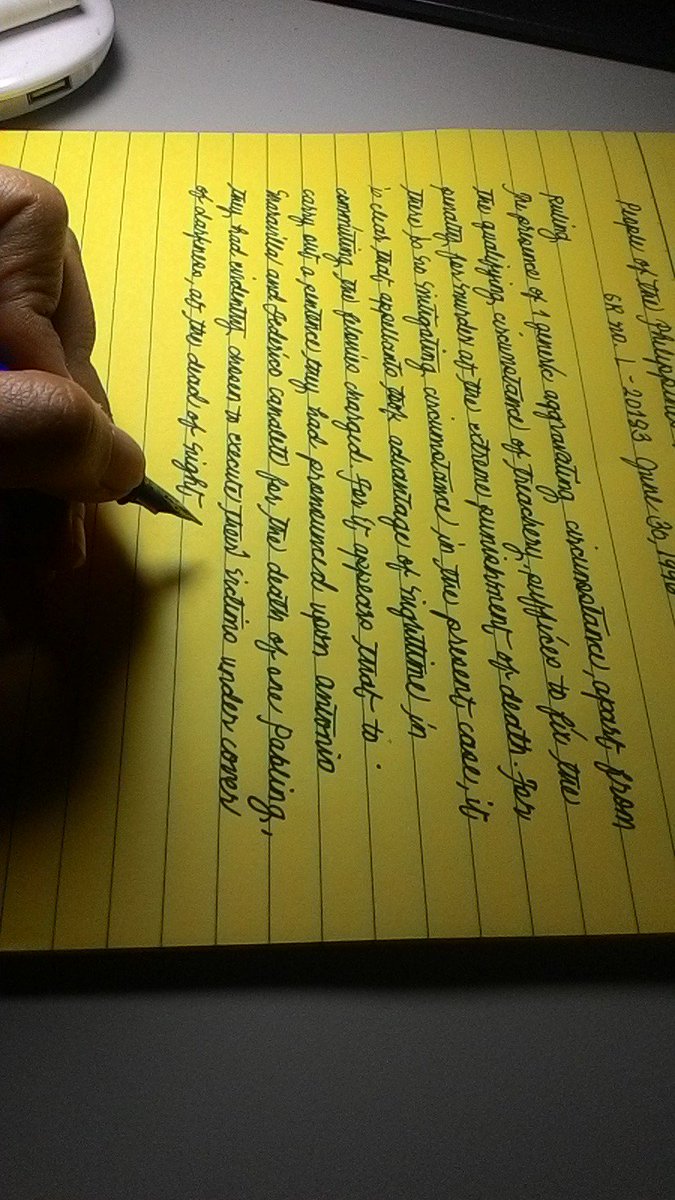 People of the Philippines
GR no. L-20183 June 30, 1966
Ruling
In presence of 1 generic aggravating circumstance, apart from
the qualifying circumstance of treachery, suffices to fix the
penalty for murder at the extreme punishment of death. For
there is no mitigating circumstance in the present case, it
is clear that appellants took advantage of nighttime in
committing the felonies charged. For it appears that to
carry out a sentence they had pronounced upon Antonio
Maravilla and Federico Canalete for the death of one Pabling,
they had evidently chosen to execute their victims under cover
of darkness, at the dead of night